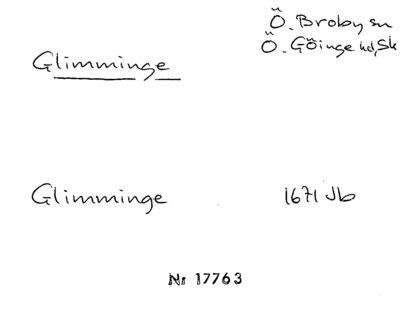 Ö. Broby sn
Ö. Göinge hd, Sk
Glimminge
Glimminge 1671 Jb
Nr 17763